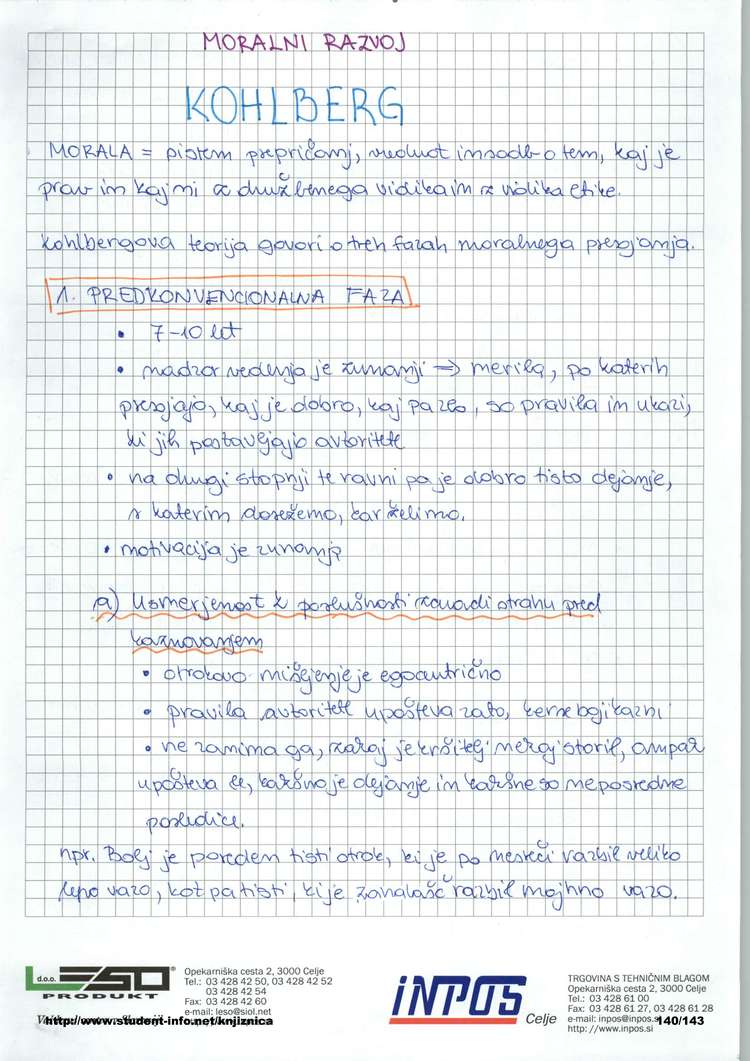 MORALNI RAZVOJ
KOHLBERG
MORALA = sistem prepričanj, vrednot in sodb o tem, kaj je
prav in kaj ni z družbenega vidika in z vidika etike.
Kohlbergova teorija govori o treh fazah moralnega presojanja.
1. PREDKONVENCIONALNA FAZA
• 7-10 let
• nadzor vedenja je zunanji => merila, po katerih
presojajo, kaj je dobro, kaj pa zlo, so pravila in ukazi,
ki jih postavljajo avtoritete
• na drugi stopnji te ravni pa je dobro tisto dejanje,
s katerim dosežemo, kar želimo.
• motivacija je zunanja
a) Usmerjenost k poslušnosti zaradi strahu pred
kaznovanjem
• otrokovo mišljenje je egocentrično
• pravila avtoritete upošteva zato, ker se boji kazni
• ne zanima ga, zakaj je kršitelj nekaj storil, ampak
upošteva le, kakšno je dejanje in kakšne so neposredne
posledice.
npr. Bolj je poreden tisti otrok, ki je po nesreči razbil veliko
lepo vazo, kot pa tisti, ki je zanalašč razbil majhno vazo.
d.o.o. LESO
PRODUKT
Opekarniška cesta 2, 3000 Celje
Tel.: 03 428 42 50, 03 428 42 52
03 428 42 54
Fax: 03 428 42 60
e-mail: leso@siol.net
http://www.student-info.net/knjiznica
INPOS Celje
TRGOVINA S TEHNIČNIM BLAGOM
Opekarniška cesta 2, 3000 Celje
Tel.: 03 428 61 00
Fax: 03 428 61 27, 03 428 61 28
e-mail: inpos@inpos.si
140/143
http://www.inpos.si